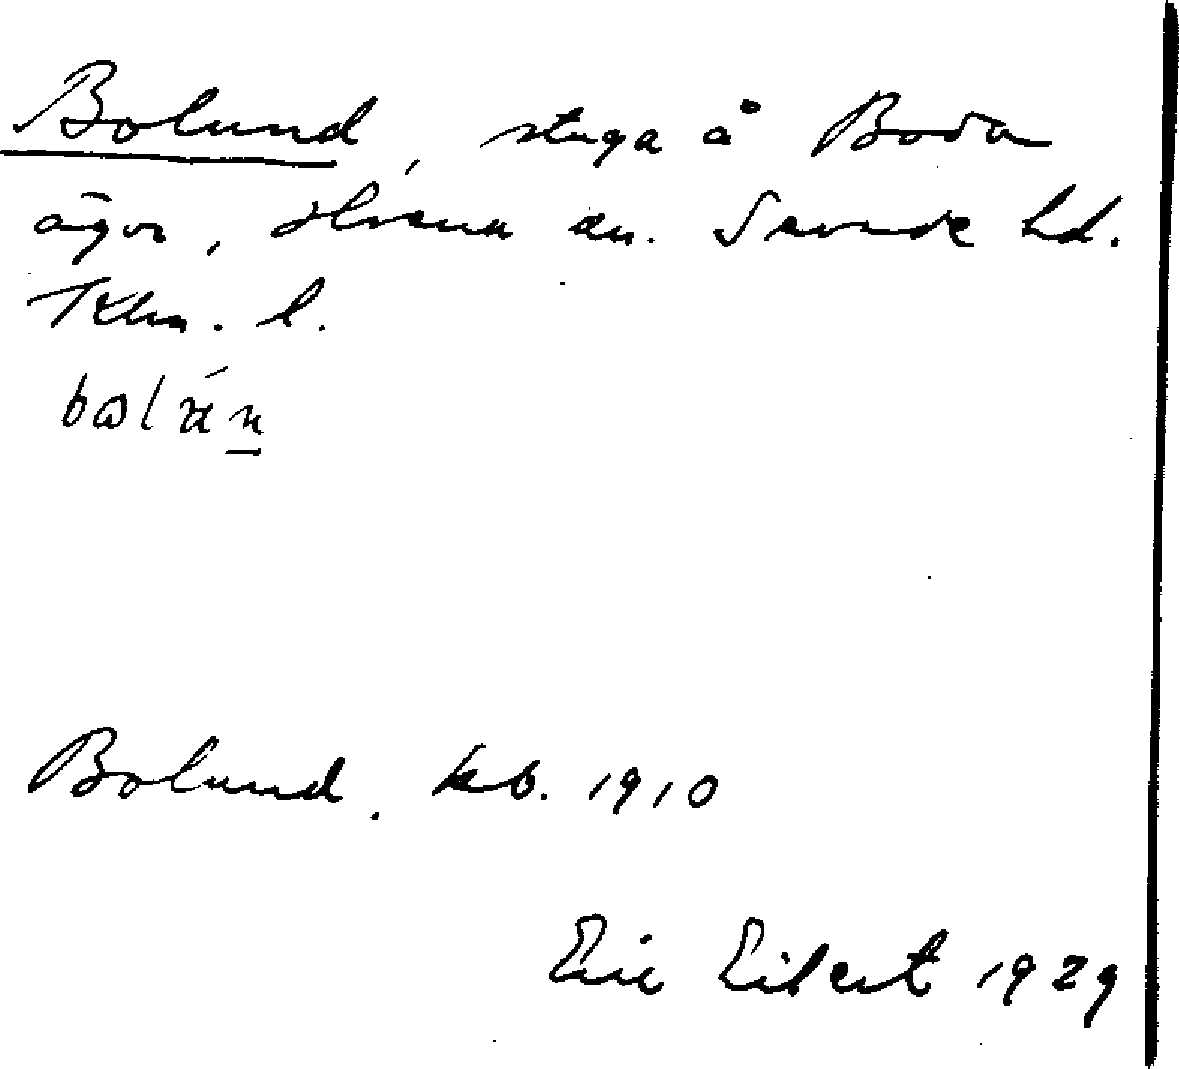 Bolund, stuga å Boda
ägor, sn. Sevede hd.
Klm. l.
Bolund. kb. 1910
Eric Eibert 1929